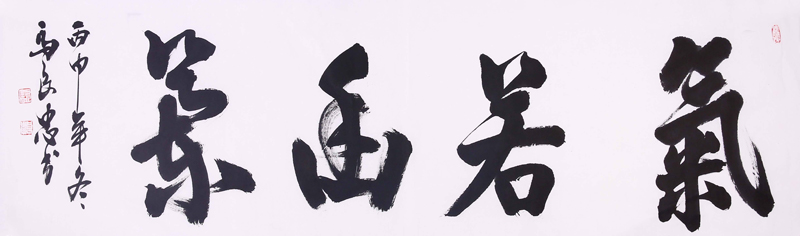 氣若幽蘭
丙申年冬
高良忠书